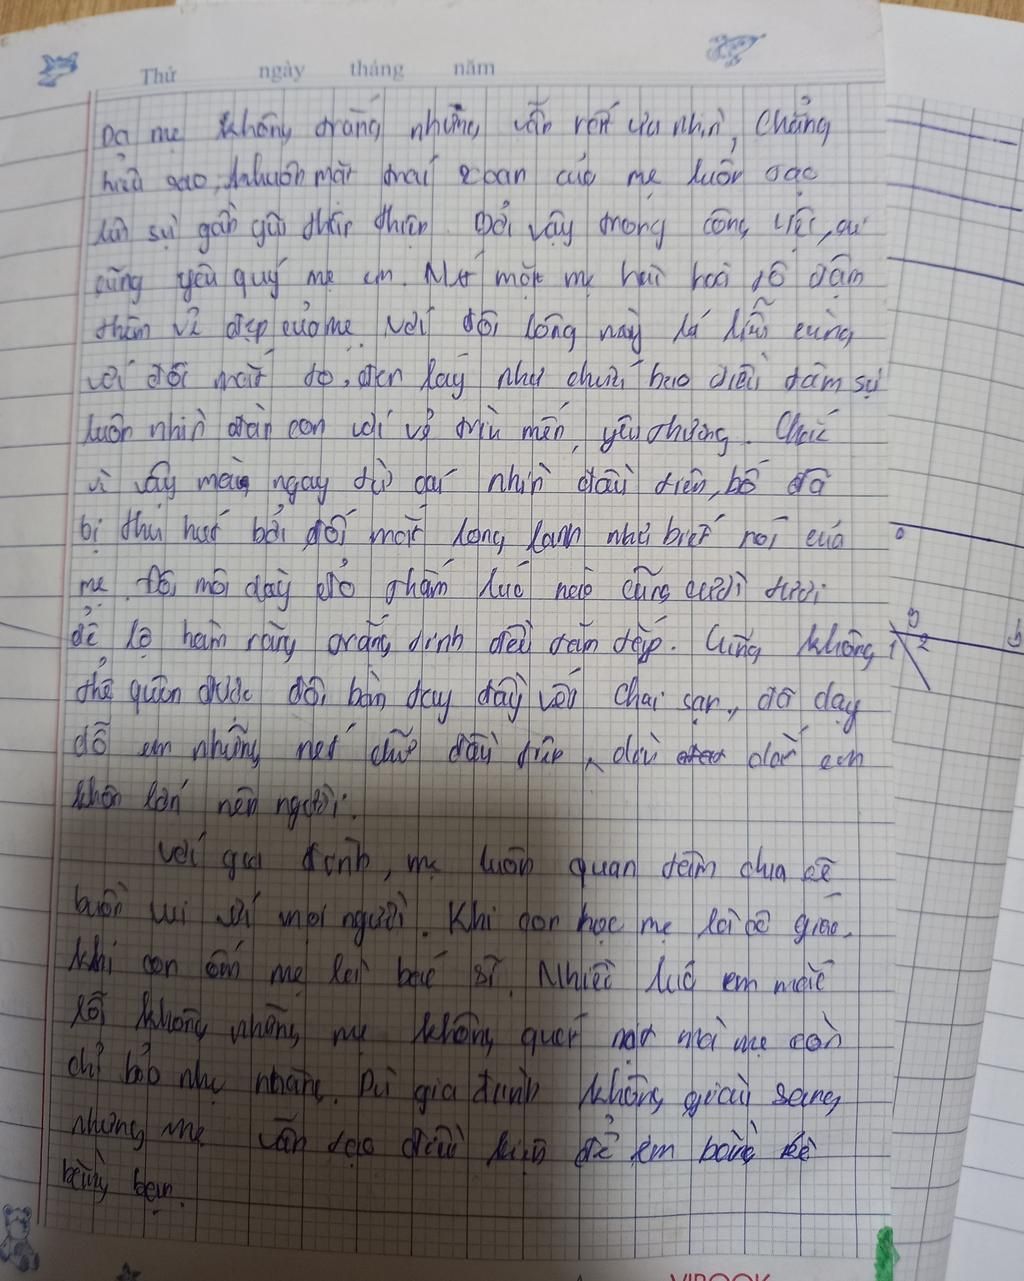 Thứ ngày tháng năm
Da mẹ không trắng nhưng vẫn rất ưa nhìn, Chẳng
hiểu sao, khuôn mặt trái xoan của mẹ luôn
sự gần gũi thân thiện. Bởi vậy trong công việc, ai
cũng yêu quý mẹ em. mẹ hài hoà đậm
thêm vẻ đẹp của mẹ. Với đôi lông này lá liễu cùng
với đôi mắt to, đen láy như chứa bao điều tâm sự
luôn nhìn đàn con với vẻ trìu mến, yêu thương. Chắc
vì vậy mà ngay từ cái nhìn đầu tiên, bố đã
bị thu hút bởi đối mắt long lanh như biết nói của
mẹ. Đôi môi dày đỏ thắm lúc nào cũng cười tươi
để lộ hàm răng trắng tinh đều tăm tắp. Cũng không
thể quên được đôi bàn tay đầy vết chai sạn, đã dạy
dỗ em những nét chữ đầu tiên, dìu dắt em
khôn lớn nên người.
Với gia đình, mẹ luôn quan tâm chia sẻ
buồn vui với mọi người. Khi con học mẹ là cô giáo,
khi con ốm mẹ là bác sĩ. Nhiều lúc em mắc
lỗi không những mẹ không quát nạt mà mẹ còn
chỉ bảo nhẹ nhàng. Dù gia đình không giàu sang
nhưng mẹ vẫn tạo điều kiện để em bằng bè
bằng bạn.
VIBOOK